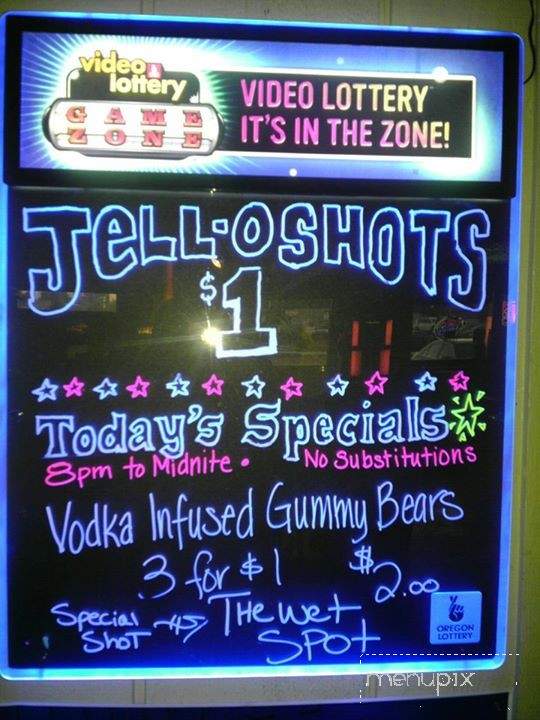 video lottery
GAME
ZONE
VIDEO LOTTERY
IT'S IN THE ZONE!
JELL-O SHOTS
$1
Today's Specials
8pm to Midnite • No Substitutions
Vodka Infused Gummy Bears
3 for $1
Special Shot The Wet Spot $2.00
OREGON
LOTTERY
menupix